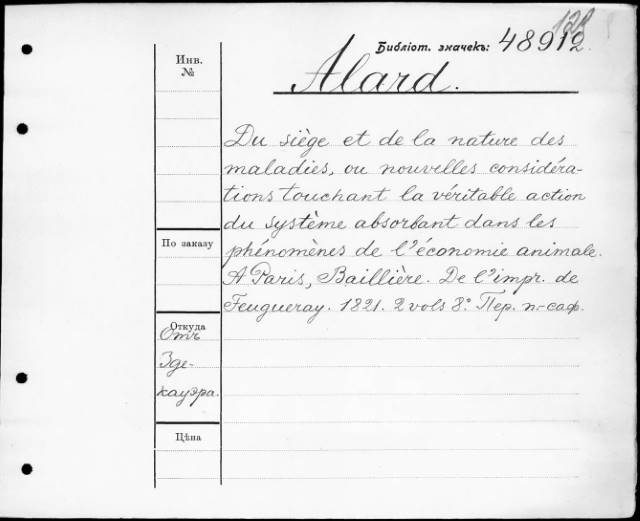 128
Библіот. значекъ: 48912.
Инв.
№
Alard.
Du siège et de la nature des
maladies, ou nouvelles considéra-
tions touchant la véritable action
du système absorbant dans les
phénomènes de l'économie animale.
A Paris, Baillière. De l'impr. de
Feugueray. 1821. 2 vols 8° Пер. п.-саф.
По заказу
Откуда
Отъ
Зде-
кауэра.
Цѣна